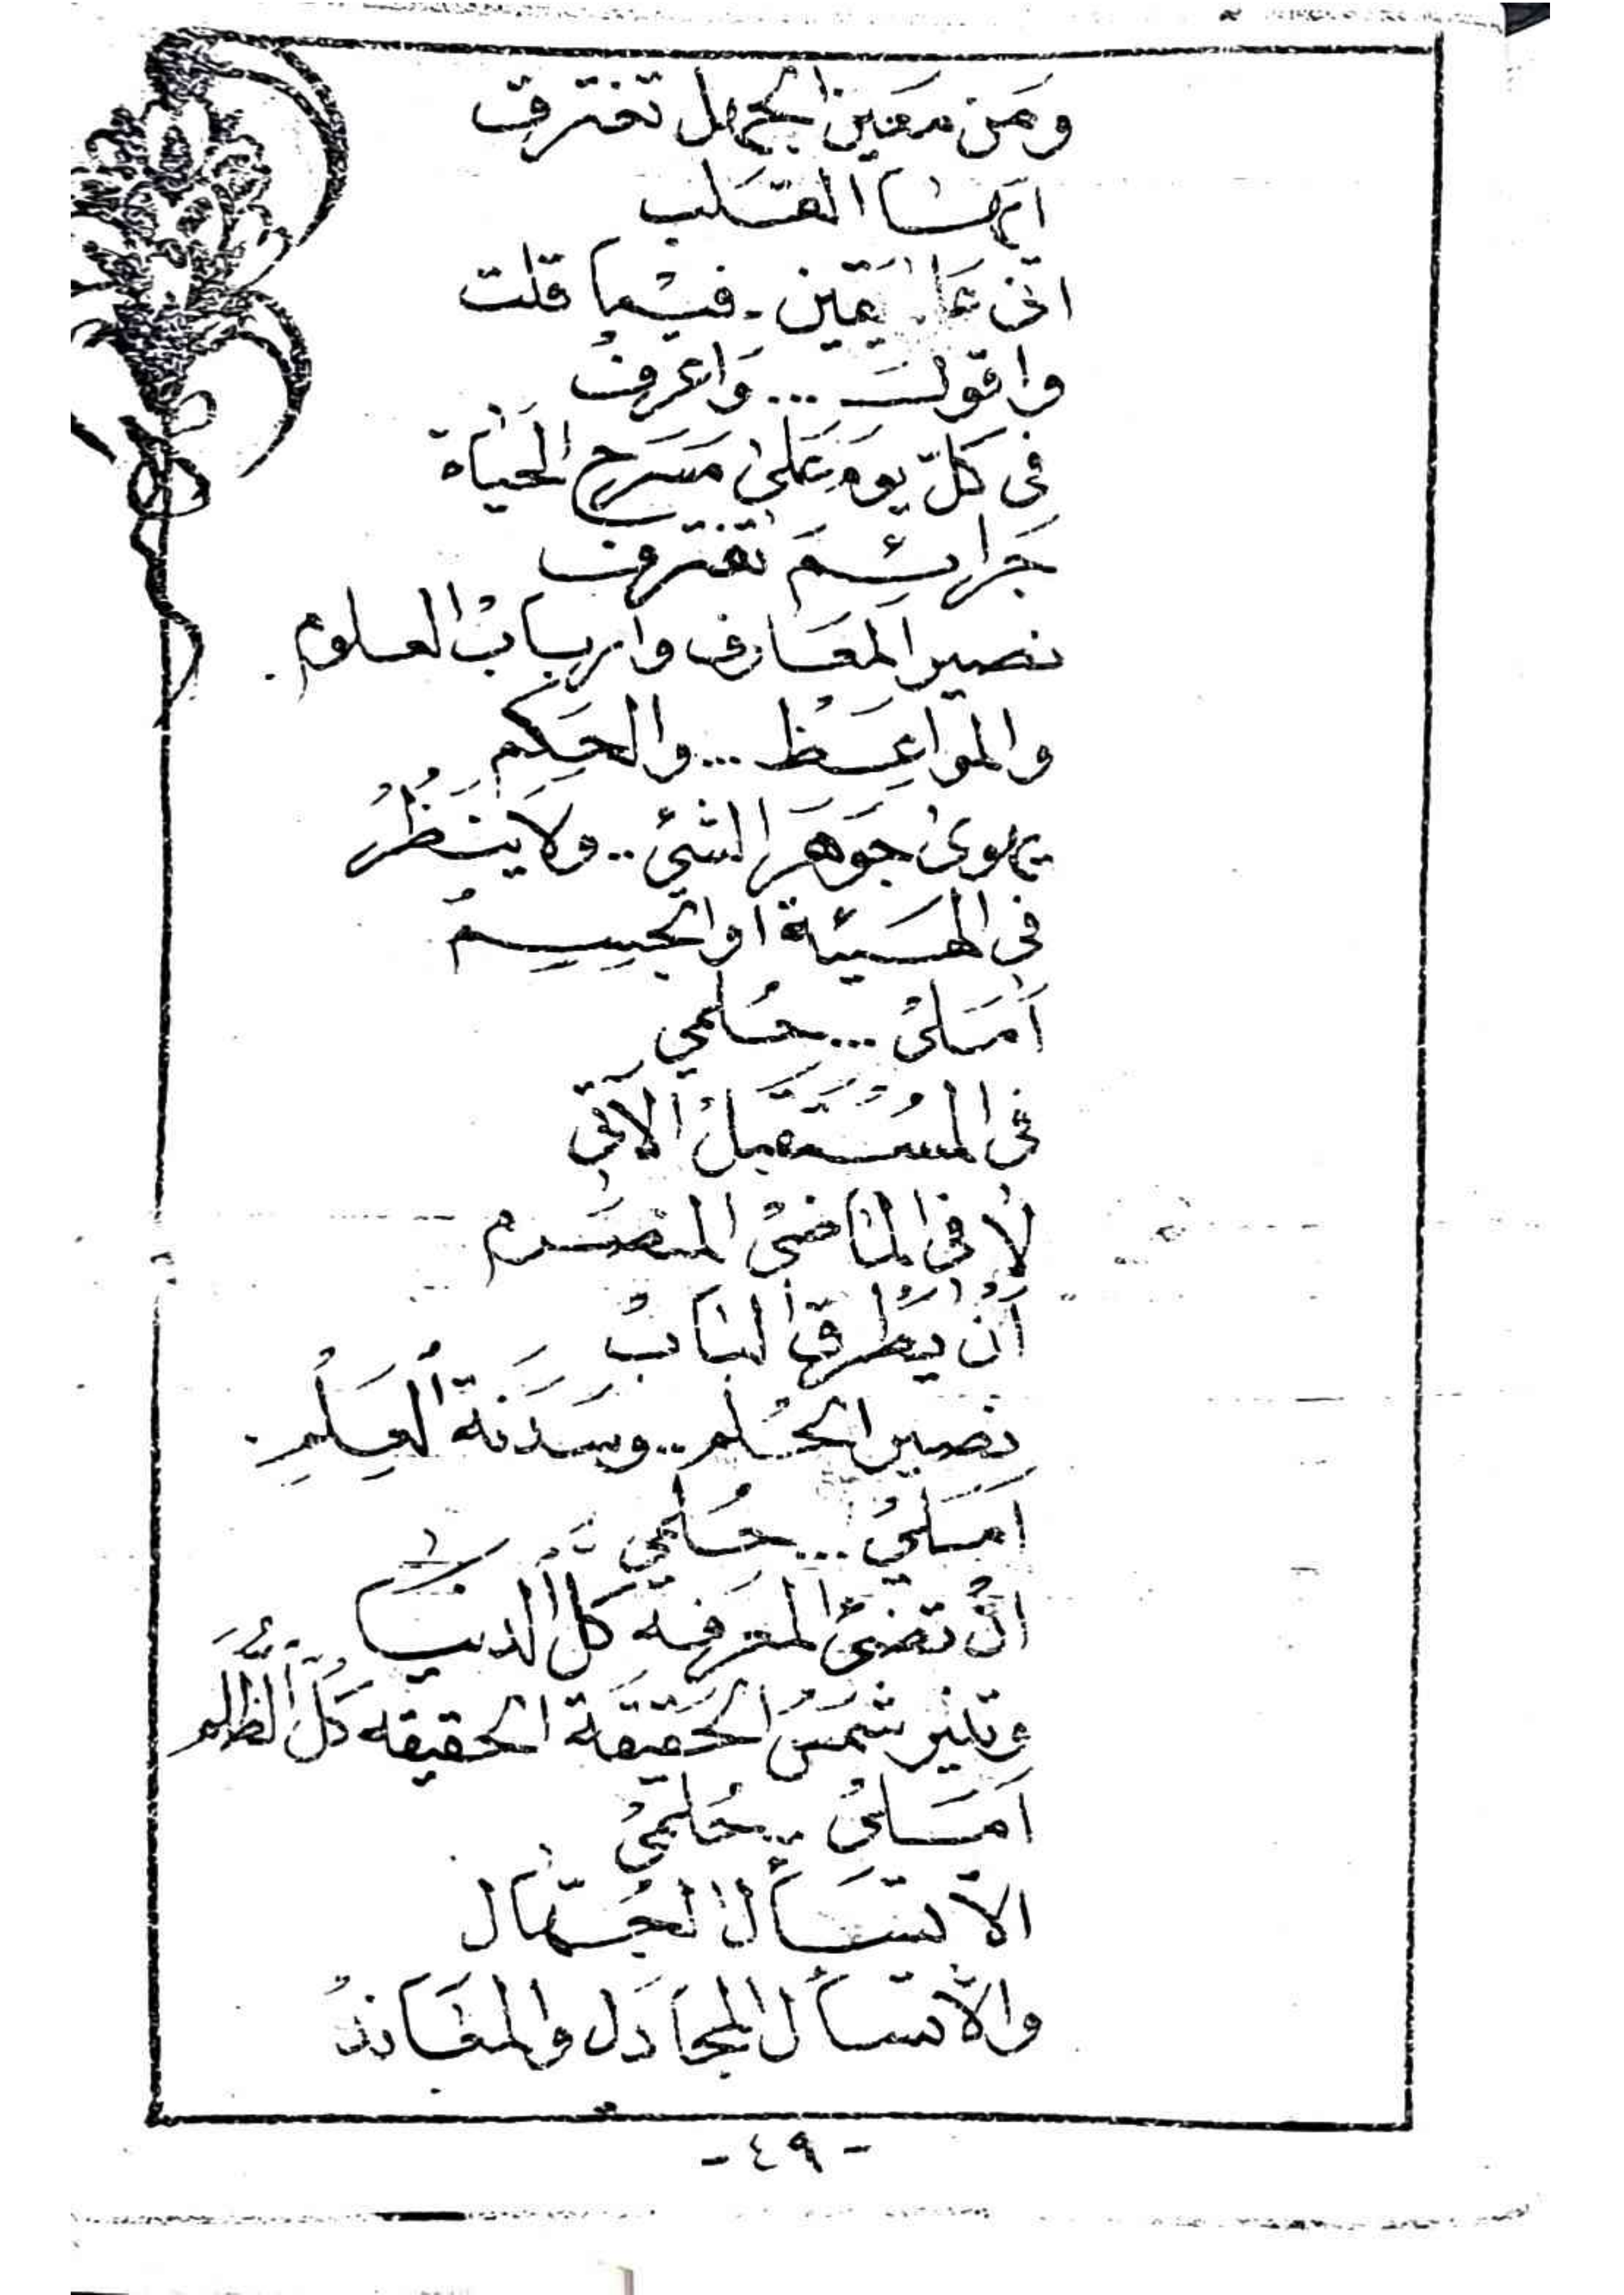 ومَن مَعَين الجهل تغترف
ايّها القلب
انى عَلى يَقين - فيما قلت
واقول ... وَاعرف
فى كلّ يوم عَلى مَسرَح الحياة
جَرائمَ تقترف
نصير المعَارف وارباب العلوم.
والمواعِظ ... والحِكم
يهوى جَوهَر الشئ .. ولا يَنظُرُ
فى الهَيئة او الجسم
أمَلى ... حُلمي
فى المُستقبل الآتى
لا فى الماضى المنصَرم
أن يَطرق البَابُ
نصير الحُلم .. وسَدَنة العِلمِ.
امَلي ... حُلمي
انْ تضئ المعرفه كلّ الدنيا
وتنير شمَسُ الحَقيقَة الحقيقه كلَّ الظُّلَم
امَلى .. حُلمي
الاّ تسَأل الجُهّال
والاّ تسأل المجادَل والمعَاند
- ٤٩ -